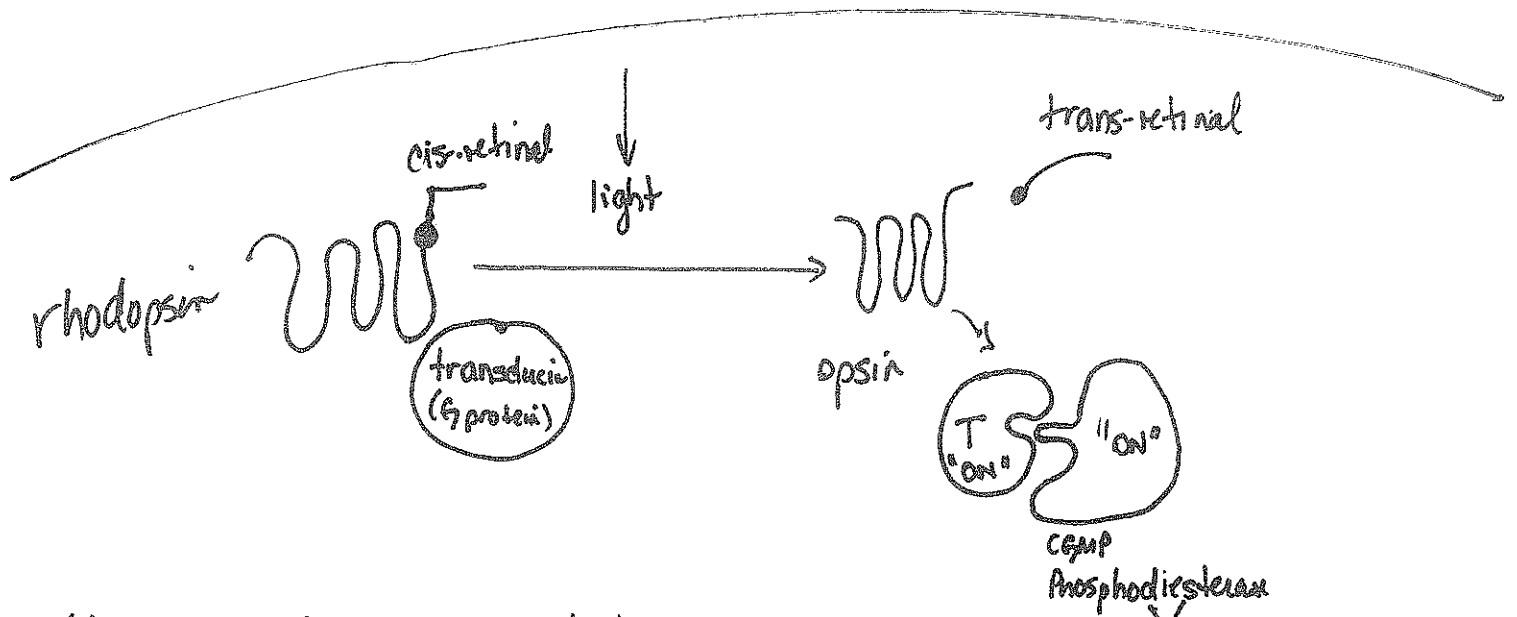 cis-retinal
light
trans-retinal
rhodopsin
transducin
(G protein)
opsin
T
"ON"
"ON"
cGMP
Phosphodiesterase